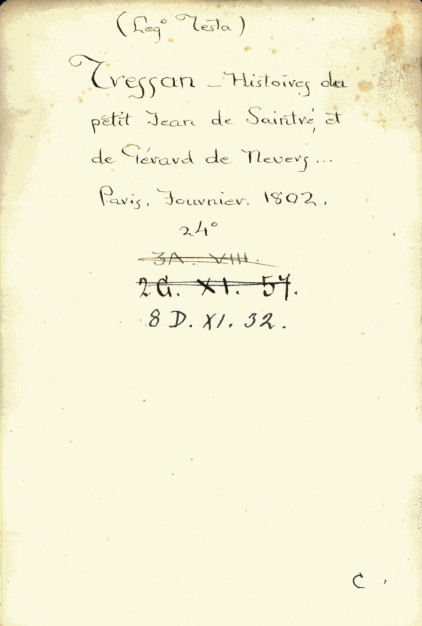 (Leg° Testa)
Tressan - Histoires du
petit Jean de Saintré, et
de Gérard de Nevers...
Paris. Fournier. 1802.
24°
3A. VIII.
2G. XI. 57.
8 D. XI. 32.
C